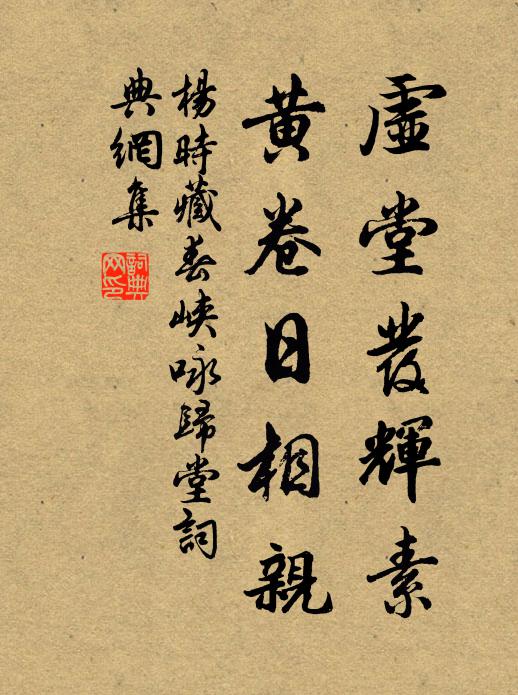 虛堂發輝素
黃卷日相親
楊時藏春峽咏歸堂詞
典網集
詞典網印